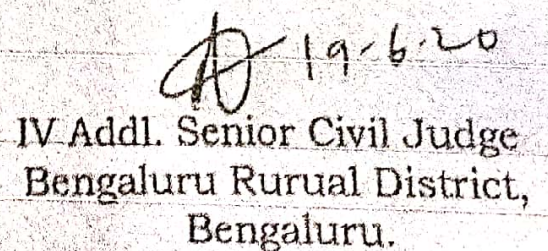 19-6-20
IV Addl. Senior Civil Judge
Bengaluru Rurual District,
Bengaluru.